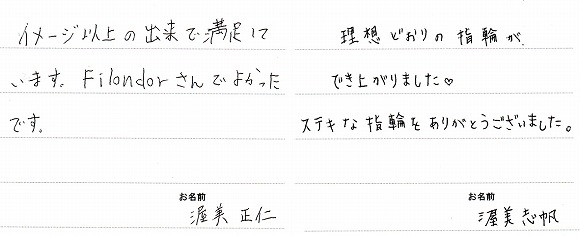 イメージ以上の出来で満足して
います。Filondorさんでよかった
です。
お名前
渥美 正仁
理想どおりの指輪が
でき上がりました♡
ステキな指輪をありがとうございました。
お名前
渥美志帆